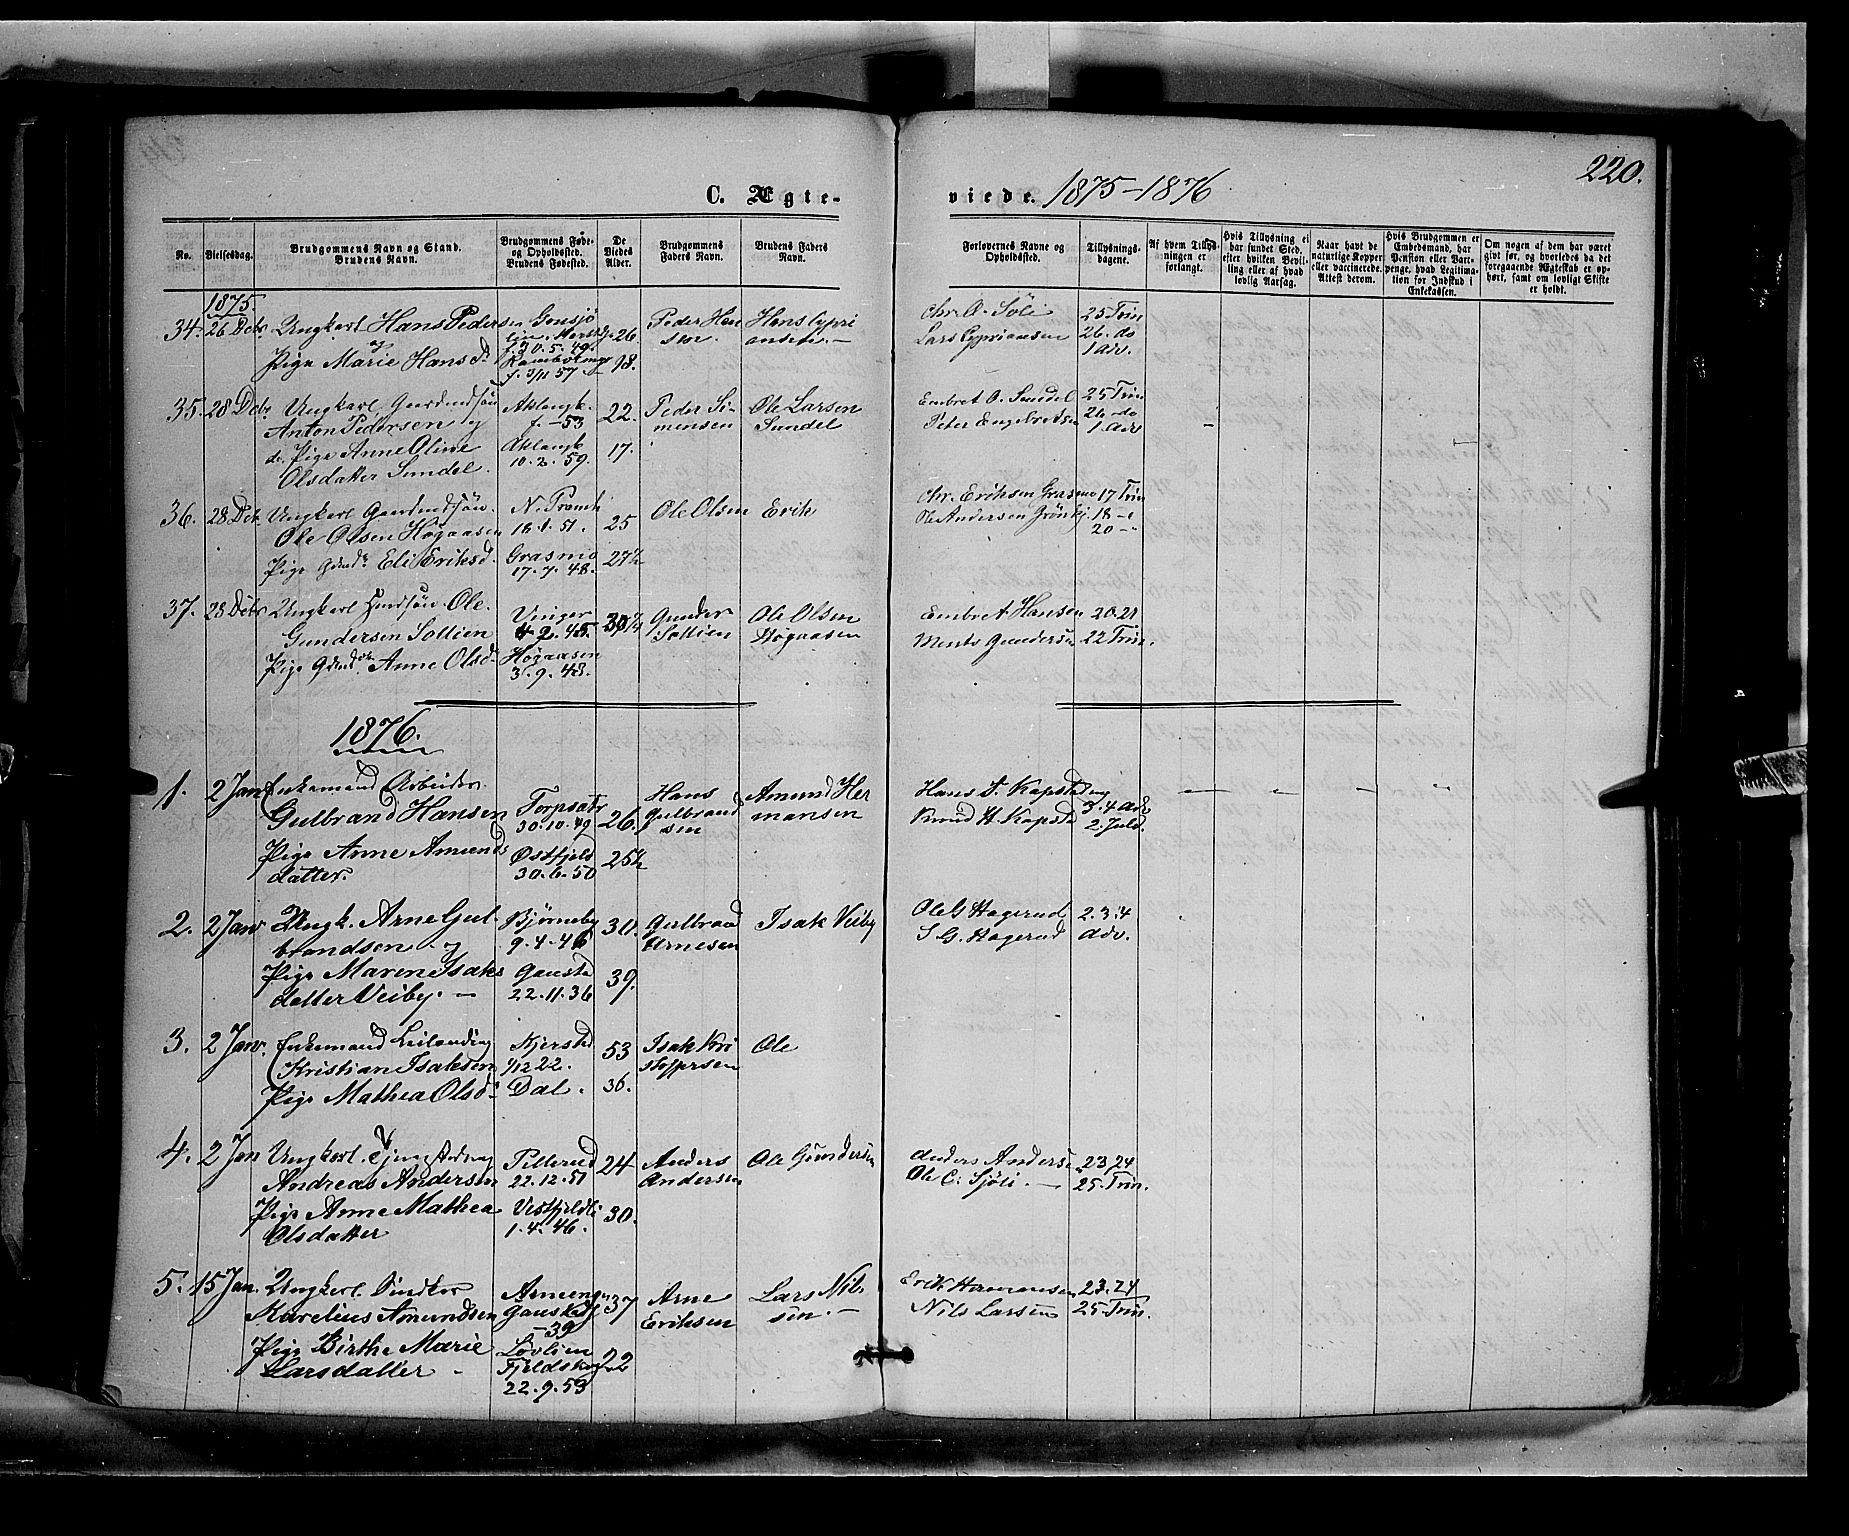 220.
C. Ægte-
viede. 1875-1876
No.
Vielsesdag.
Brudgommens Navn og Stand.
Brudens Navn.
Brudgommens Føde-
og Opholdssted.
Brudens Fødested.
De
Viedes
Alder.
Brudgommens
Faders Navn.
Brudens Faders
Navn.
Forlovernes Navne og
Opholdssted.
Tillysnings-
dagene.
Af hvem Tillys-
ningen er
forlangt.
Hvis Tillysning ei
har fundet Sted,
efter hvilken Bevil-
ling eller af hvad
lovlig Aarsag.
Naar havt de
naturlige Kopper
eller vaccinerede.
Attest derom.
Hvis Brudgommen er
Embedsmand, har hvad
Pension eller Vart-
penge, hvad Legitima-
tion for Indskud i
Enkekassen.
Om nogen af dem har været
gift før, og hvorledes da det
foregaaende Ægteskab er op-
hørt, samt om lovligt Skifte
er holdt.
1875
34. 26 Dcbr Ungkarl Hans Peder-
sen 26 Peder Han Hans Cypri Chr. O. Søli 25 Trin
f. 30.5.49. sen. ansen. — Lars Cypriansen 26. do
og 1 Adv.
Pige Marie Hansd. f. 3/11 57 18.
35. 28 Dcbr Ungkarl Gaardmdsøn Aklangb. 22. Peder Si- Ole Larsen Embret O. Sundel 25 Trin
Anton Pedersen og f. -53 mensen Sundel Peter Engebretsen 26 do
1. Adv
Pige Anne Oline Aklangb 17.
Olsdatter Sundel. 10.2.59.
36. 28 Dcbr. Ungkarl Gaardmdsøn 25 Ole Olsen Erik Chr. Eriksen Grasmo 17 Trin
Ole Olsen Høgaasen 18.1.51. Ole Andersen 18 -
20 -
Pige Eli Eriksd. Grasmo 27½
17.7.48.
37. 28 Dcbr Ungkarl Ole Vinger 30¼ Gunder Ole Olsen Embret Hansen 20.21
Gundersen Sollien 4.2.45. Sollien Høgaasen Gundersen 22 Trin.
Pige Anne Olsd. Høgaasen
3.9.48.
1876.
1. 2 Jan Enkemand Arbeider
Gulbrand Hansen Torpsætr 26. Hans Amund Her Hans Kapstad
30.10.49 Gulbrand mansen Knud H. Kapstad 3.4 Adv
sen 2. Juld.
Pige Anne Amunds Østfjeld 25½
datter. 30.6.50
2. 2 Jan Ungk. Arne Gul- Bjørneby 30. Gulbrand Isak Veiby Ole G Hagerud 2.3.4
brandsen og 9.4.46 Arnesen S G. Hagerud Adv.
Pige Maren Isaks Gaustad 39.
datter Veiby. — 22.11.36
3. 2 Jan. Enkemand Leilænding Kjerstad 53 Isak Kri Ole
Kristian Isaksen 1/12 22. stoffersen
Pige Mathea Olsd. Dal. 36.
4. 2 Jan Ungkarl Pellerud 24 Anders Ole Gundersen Anders Andersen 23,24
Andreas Andersen 22.12.51 Andersen Ole C. Sjøli. — 25. Trin.
Pige Anne Mathea Vestfjeldli 30.
Olsdatter 1.4.46.
5. 15 Jan. Ungkarl 37 Arne Lars Nil- Erik Hermansen 23.24
Karelius Amundsen Eriksen sen. — Nils Larsen 25. Trin.
-39
Pige Birthe Marie Løvlien 22
Larsdatter Fjeldskog
22.9.53